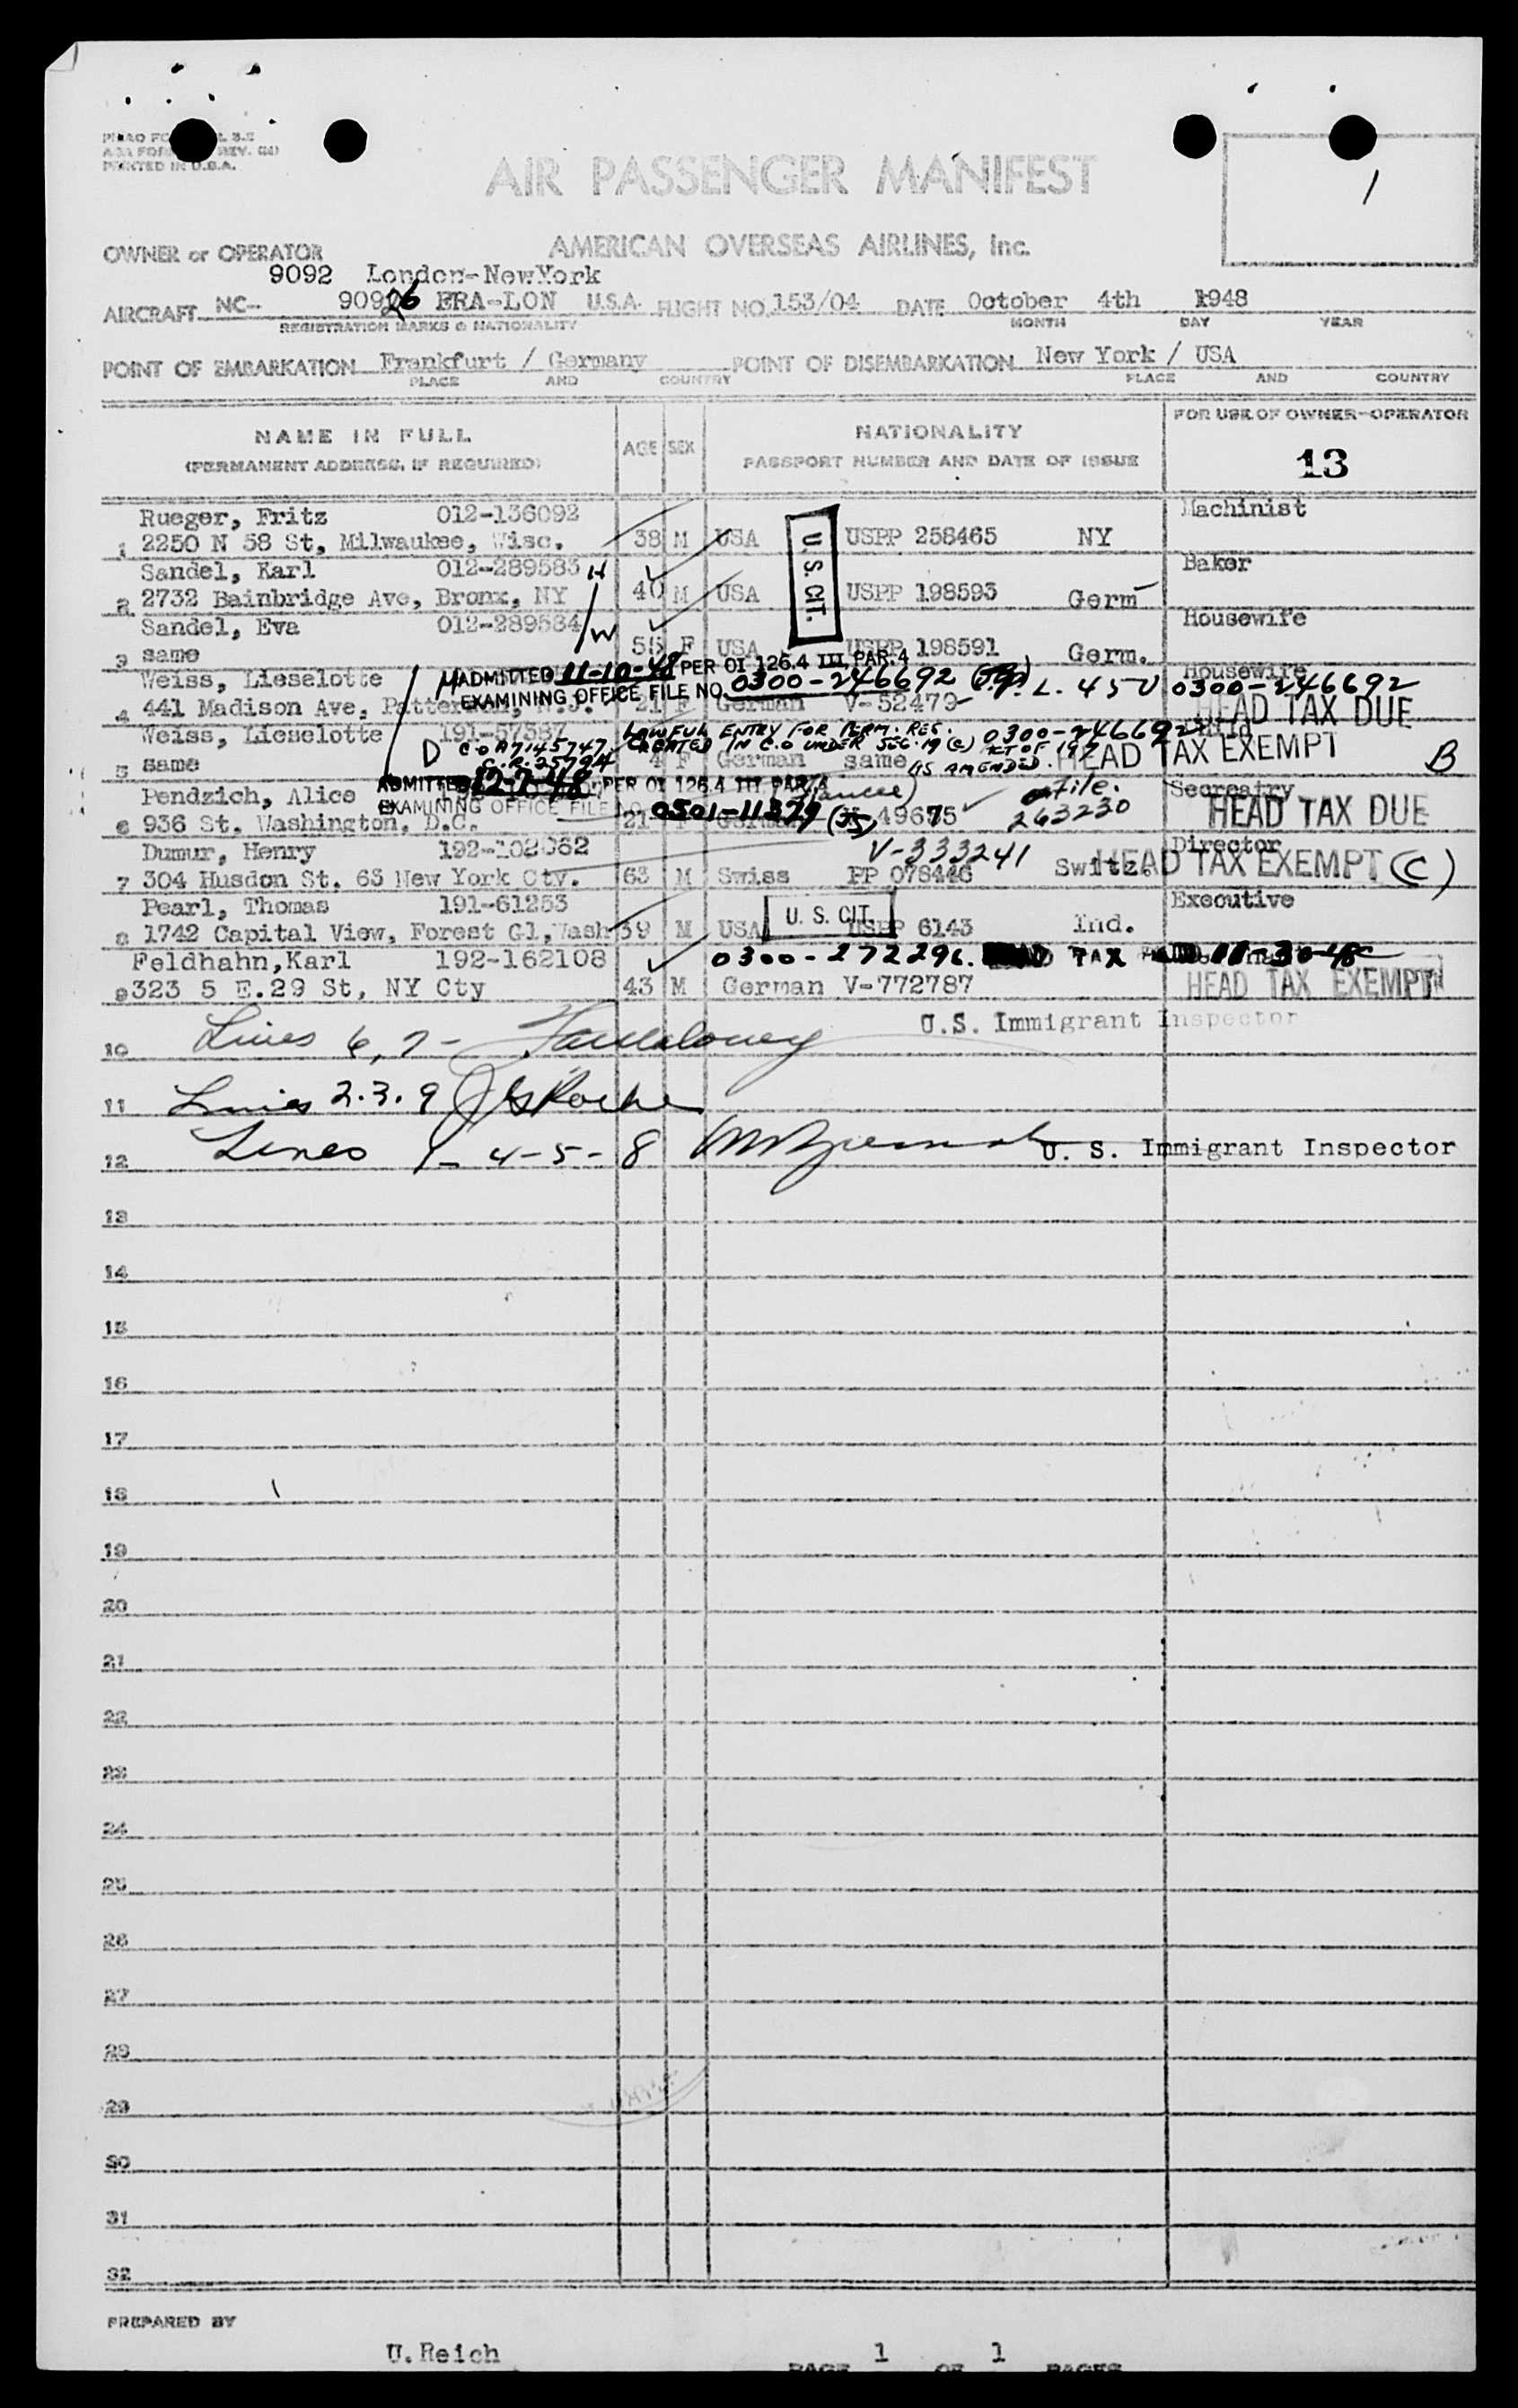 PRINTED IN U.S.A.
1
AIR PASSENGER MANIFEST
OWNER or OPERATOR AMERICAN OVERSEAS AIRLINES, Inc.
9092 London-NewYork
AIRCRAFT NC- 90926 FRA-LON U.S.A. FLIGHT NO. 153/04 DATE October 4th 1948
REGISTRATION MARKS & NATIONALITY MONTH DAY YEAR
POINT OF EMBARKATION Frankfurt / Germany POINT OF DISEMBARKATION New York / USA
PLACE AND COUNTRY PLACE AND COUNTRY
NAME IN FULL AGE SEX NATIONALITY FOR USE OF OWNER-OPERATOR
(PERMANENT ADDRESS, IF REQUIRED) PASSPORT NUMBER AND DATE OF ISSUE 13
Rueger, Fritz 012-136092 Machinist
1 2250 N 58 St, Milwaukee, Wisc. 38 M USA U.S. CIT. USPP 258465 NY
Sandel, Karl 012-289583 H Baker
2 2732 Bainbridge Ave, Bronx, NY 40 M USA USPP 198593 Germ
Sandel, Eva 012-289584 W Housewife
3 same 55 F USA USPP 198591 Germ.
ADMITTED 11-10-48 PER OI 126.4 III, PAR. 4
Weiss, Lieselotte EXAMINING OFFICE FILE NO. 0300-246692 P.L. 450 Housewife 0300-246692
4 441 Madison Ave, 21 F German V-52479 HEAD TAX DUE
Weiss, Lieselotte 191-57587 LAWFUL ENTRY FOR PERM. RES. 0300-246692
D C.O A7145747 CREATED IN C.O UNDER SEC. 19 (c) ACT OF 1917
C.R. 25794 AS AMENDED.
5 same 4 F German same HEAD TAX EXEMPT B
ADMITTED 12-7-48 PER OI 126.4 III PAR 4
Pendzich, Alice EXAMINING OFFICE FILE NO 0501-11379 File. 263230 Secreatry
6 936 St. Washington, D.C. 21 F German 49675 HEAD TAX DUE
Dumur, Henry 192-102062 V-333241 Director
7 304 Husdon St. 63 New York Cty. 63 M Swiss PP 078446 Switz. HEAD TAX EXEMPT (C)
Pearl, Thomas 191-61253 Executive
8 1742 Capital View, Forest Gl, Wash 39 M USA U. S. CIT. USPP 6143 Ind.
Feldhahn, Karl 192-162108 0300-272296. HEAD TAX
9 323 5 E.29 St, NY Cty 43 M German V-772787 HEAD TAX EXEMPT
U.S. Immigrant Inspector
10 Lines 6, 7-
11 Lines 2.3.9 Roche
12 Lines 1-4-5-8 U. S. Immigrant Inspector
13
14
15
16
17
18
19
20
21
22
23
24
25
26
27
28
29
30
31
32
PREPARED BY
U.Reich PAGE 1 OF 1 PAGES